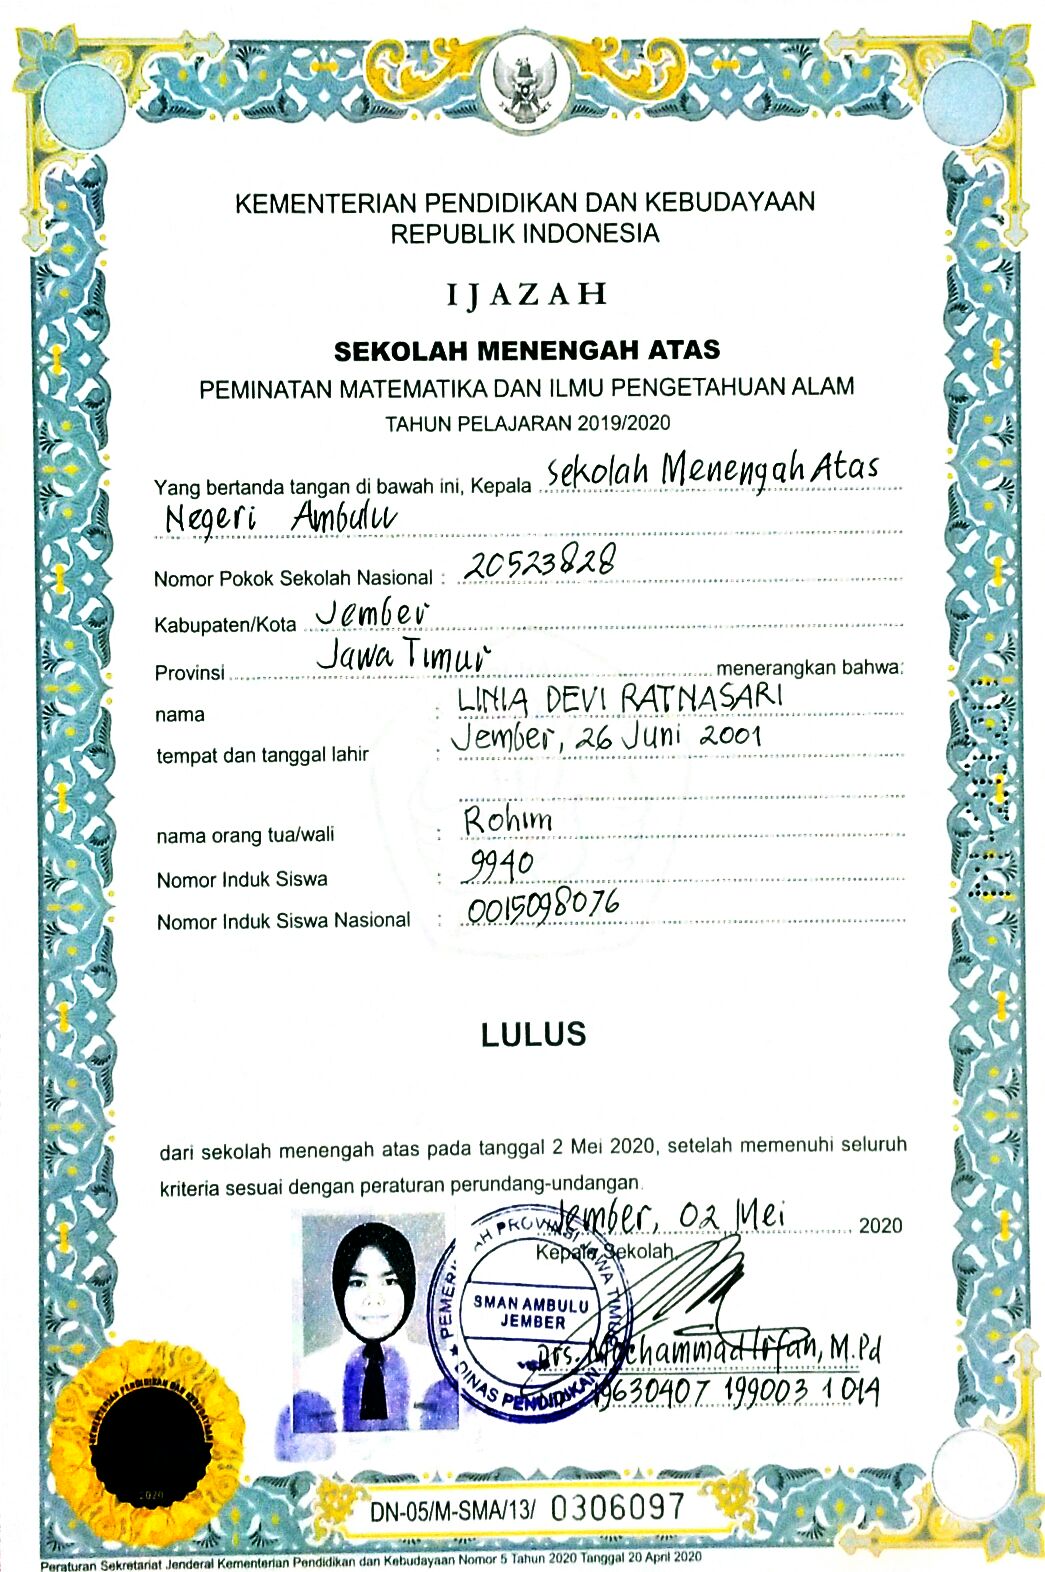 KEMENTERIAN PENDIDIKAN DAN KEBUDAYAAN
REPUBLIK INDONESIA
IJAZAH
SEKOLAH MENENGAH ATAS
PEMINATAN MATEMATIKA DAN ILMU PENGETAHUAN ALAM
TAHUN PELAJARAN 2019/2020
Yang bertanda tangan di bawah ini, Kepala Sekolah Menengah Atas
Negeri Ambulu
Nomor Pokok Sekolah Nasional : 20523828
Kabupaten/Kota Jember
Provinsi Jawa Timur menerangkan bahwa:
nama : LINIA DEVI RATNASARI
tempat dan tanggal lahir : Jember, 26 Juni 2001
nama orang tua/wali : Rohim
Nomor Induk Siswa : 9940
Nomor Induk Siswa Nasional : 0015098076
LULUS
dari sekolah menengah atas pada tanggal 2 Mei 2020, setelah memenuhi seluruh
kriteria sesuai dengan peraturan perundang-undangan.
Jember, 02 Mei 2020
Kepala Sekolah,
PEMERINTAH PROVINSI JAWA TIMUR
SMAN AMBULU
JEMBER
DINAS PENDIDIKAN
Drs. Mochammad Irfan, M.Pd
19630407 199003 1 014
KEMENTERIAN PENDIDIKAN DAN KEBUDAYAAN
2020
DN-05/M-SMA/13/ 0306097
Peraturan Sekretariat Jenderal Kementerian Pendidikan dan Kebudayaan Nomor 5 Tahun 2020 Tanggal 20 April 2020